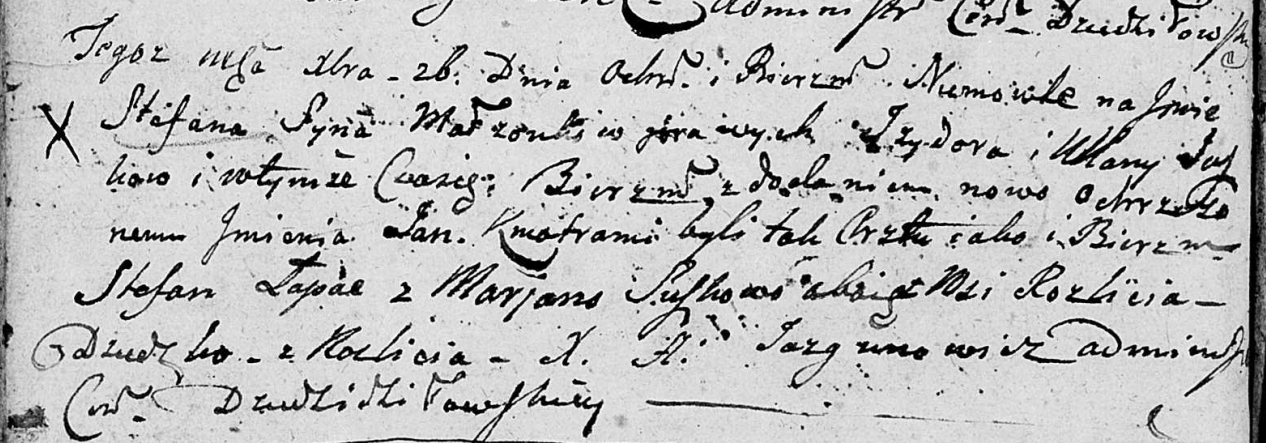 Administr Cerk. Dziedziłowsky
Tegoż msca Xbra - 26. Dnia Ochrz i Bierzm Niemowle na Jmie
X Stefana Syna Małzonków prawych Izydora i Ulany
kow i wtymże Czasie Bierzm z dodaniem nowo Ochrzczo
nemu Jmienia Jan. Kmotrami byli tak Chrztu iako i Bierzm
Stefan Łapac z Marjano Suszkowo oboie z Wsi Rozlicia -
Dziedzko - z Rozlicia - X. A. Jazgunowicz administ
Cerk. Dziedzidziłowskiey